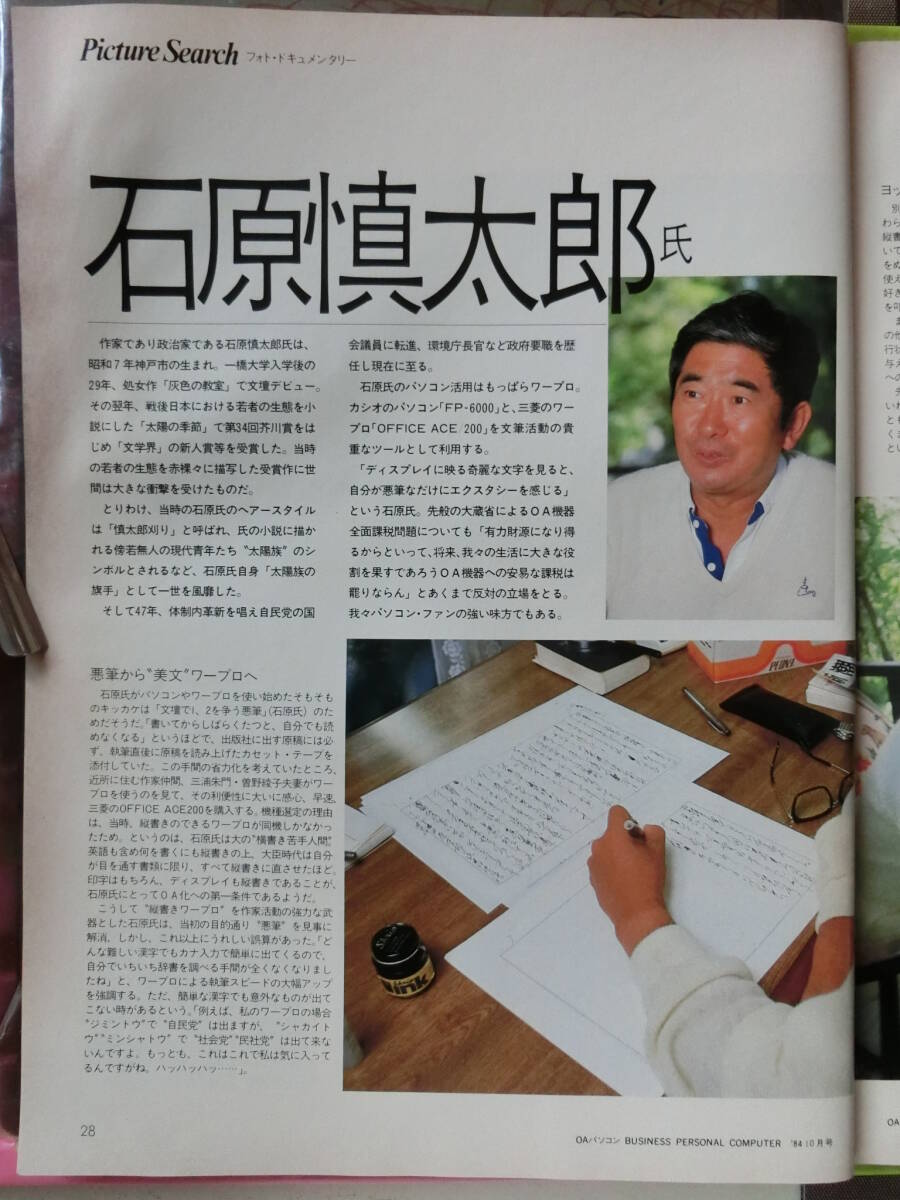 Picture Search フォト・ドキュメンタリー
石原慎太郎氏
作家であり政治家である石原慎太郎氏は、
昭和7年神戸市の生まれ。一橋大学入学後の
29年、処女作「灰色の教室」で文壇デビュー。
その翌年、戦後日本における若者の生態を小
説にした「太陽の季節」で第34回芥川賞をは
じめ「文学界」の新人賞等を受賞した。当時
の若者の生態を赤裸々に描写した受賞作に世
間は大きな衝撃を受けたものだ。
とりわけ、当時の石原氏のヘアースタイル
は「慎太郎刈り」と呼ばれ、氏の小説に描か
れる傍若無人の現代青年たち〝太陽族〟のシ
ンボルとされるなど、石原氏自身「太陽族の
旗手」として一世を風靡した。
そして47年、体制内革新を唱え自民党の国
会議員に転進、環境庁長官など政府要職を歴
任し現在に至る。
石原氏のパソコン活用はもっぱらワープロ。
カシオのパソコン「FP-6000」と、三菱のワー
プロ「OFFICE ACE 200」を文筆活動の貴
重なツールとして利用する。
「ディスプレイに映る奇麗な文字を見ると、
自分が悪筆なだけにエクスタシーを感じる」
という石原氏。先般の大蔵省によるOA機器
全面課税問題についても「有力財源になり得
るからといって、将来、我々の生活に大きな役
割を果すであろうOA機器への安易な課税は
罷りならん」とあくまで反対の立場をとる。
我々パソコン・ファンの強い味方でもある。
悪筆から〝美文〟ワープロへ
石原氏がパソコンやワープロを使い始めたそもそも
のキッカケは「文壇で1、2を争う悪筆」(石原氏) のた
めだそうだ。「書いてからしばらくたつと、自分でも読
めなくなる」というほどで、出版社に出す原稿には必
ず、執筆直後に原稿を読み上げたカセット・テープを
添付していた。この手間の省力化を考えていたところ、
近所に住む作家仲間、三浦朱門・曽野綾子夫妻がワー
プロを使うのを見て、その利便性に大いに感心、早速、
三菱のOFFICE ACE200を購入する。機種選定の理由
は、当時、縦書きのできるワープロが同機しかなかっ
たため。というのは、石原氏は大の〝横書き苦手人間〟。
英語も含め何を書くにも縦書きの上、大臣時代は自分
が目を通す書類に限り、すべて縦書きに直させたほど。
印字はもちろん、ディスプレイも縦書きであることが、
石原氏にとってOA化への第一条件であるようだ。
こうして〝縦書きワープロ〟を作家活動の強力な武
器とした石原氏は、当初の目的通り〝悪筆〟を見事に
解消。しかし、これ以上にうれしい誤算があった。「ど
んな難しい漢字でもカナ入力で簡単に出てくるので、
自分でいちいち辞書を調べる手間が全くなくなりまし
たね」と、ワープロによる執筆スピードの大幅アップ
を強調する。ただ、簡単な漢字でも意外なものが出て
こない時があるという。「例えば、私のワープロの場合
〝ジミントウ〟で〝自民党〟は出ますが、〝シャカイト
ウ〟〝ミンシャトウ〟で〝社会党〟〝民社党〟は出て来な
いんですよ。もっとも、これはこれで私は気に入って
るんですがね。ハッハッハッ……」。
ink
28
OAパソコン BUSINESS PERSONAL COMPUTER '84 10月号